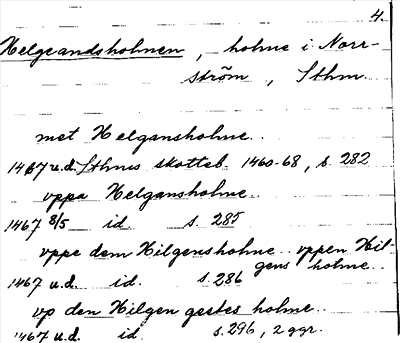 4.
Helgeandsholmen, holme i Norr-
ström, Sthm.
met Helgansholme..
1467 u.d. Sthms skotteb. 1460-68, s. 282
vppa Helgansholme..
1467 8/5 id. s. 285
vppe dem Hilgensholme.. vppen Hil-
gens holme..
1467 u.d. id. s. 286
vp den Hilgen gestes holme..
1467 u.d. id. s. 296, 2 ggr.